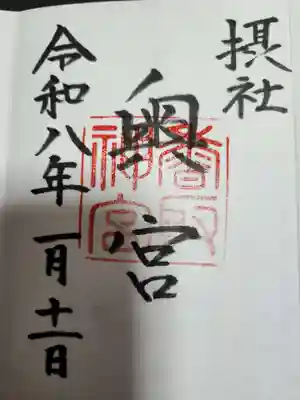 摂社
奥宮
香取
神宮
令和八年一月十一日